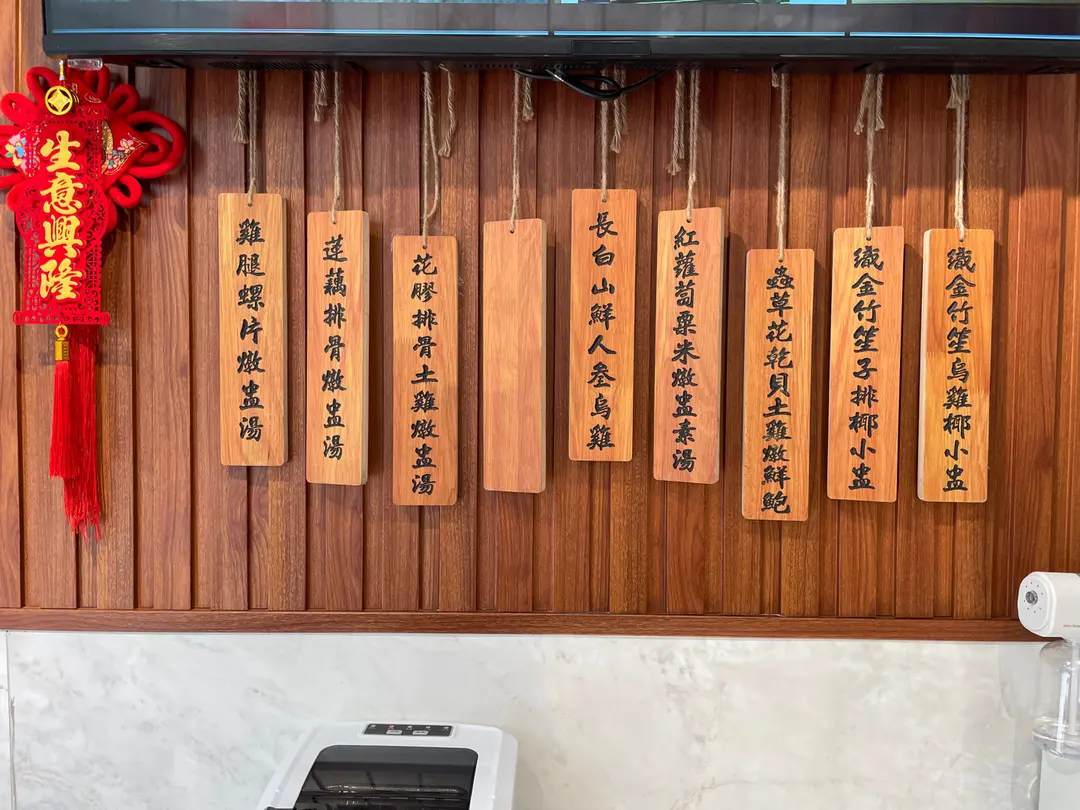 生意興隆
雞腿螺片燉盅湯
蓮藕排骨燉盅湯
花膠排骨土雞燉盅湯
長白山鮮人叄烏雞
紅蘿蔔粟米燉盅素湯
蟲草花乾貝土雞燉鮮鮑
織金竹笙子排椰小盅
織金竹笙烏雞椰小盅